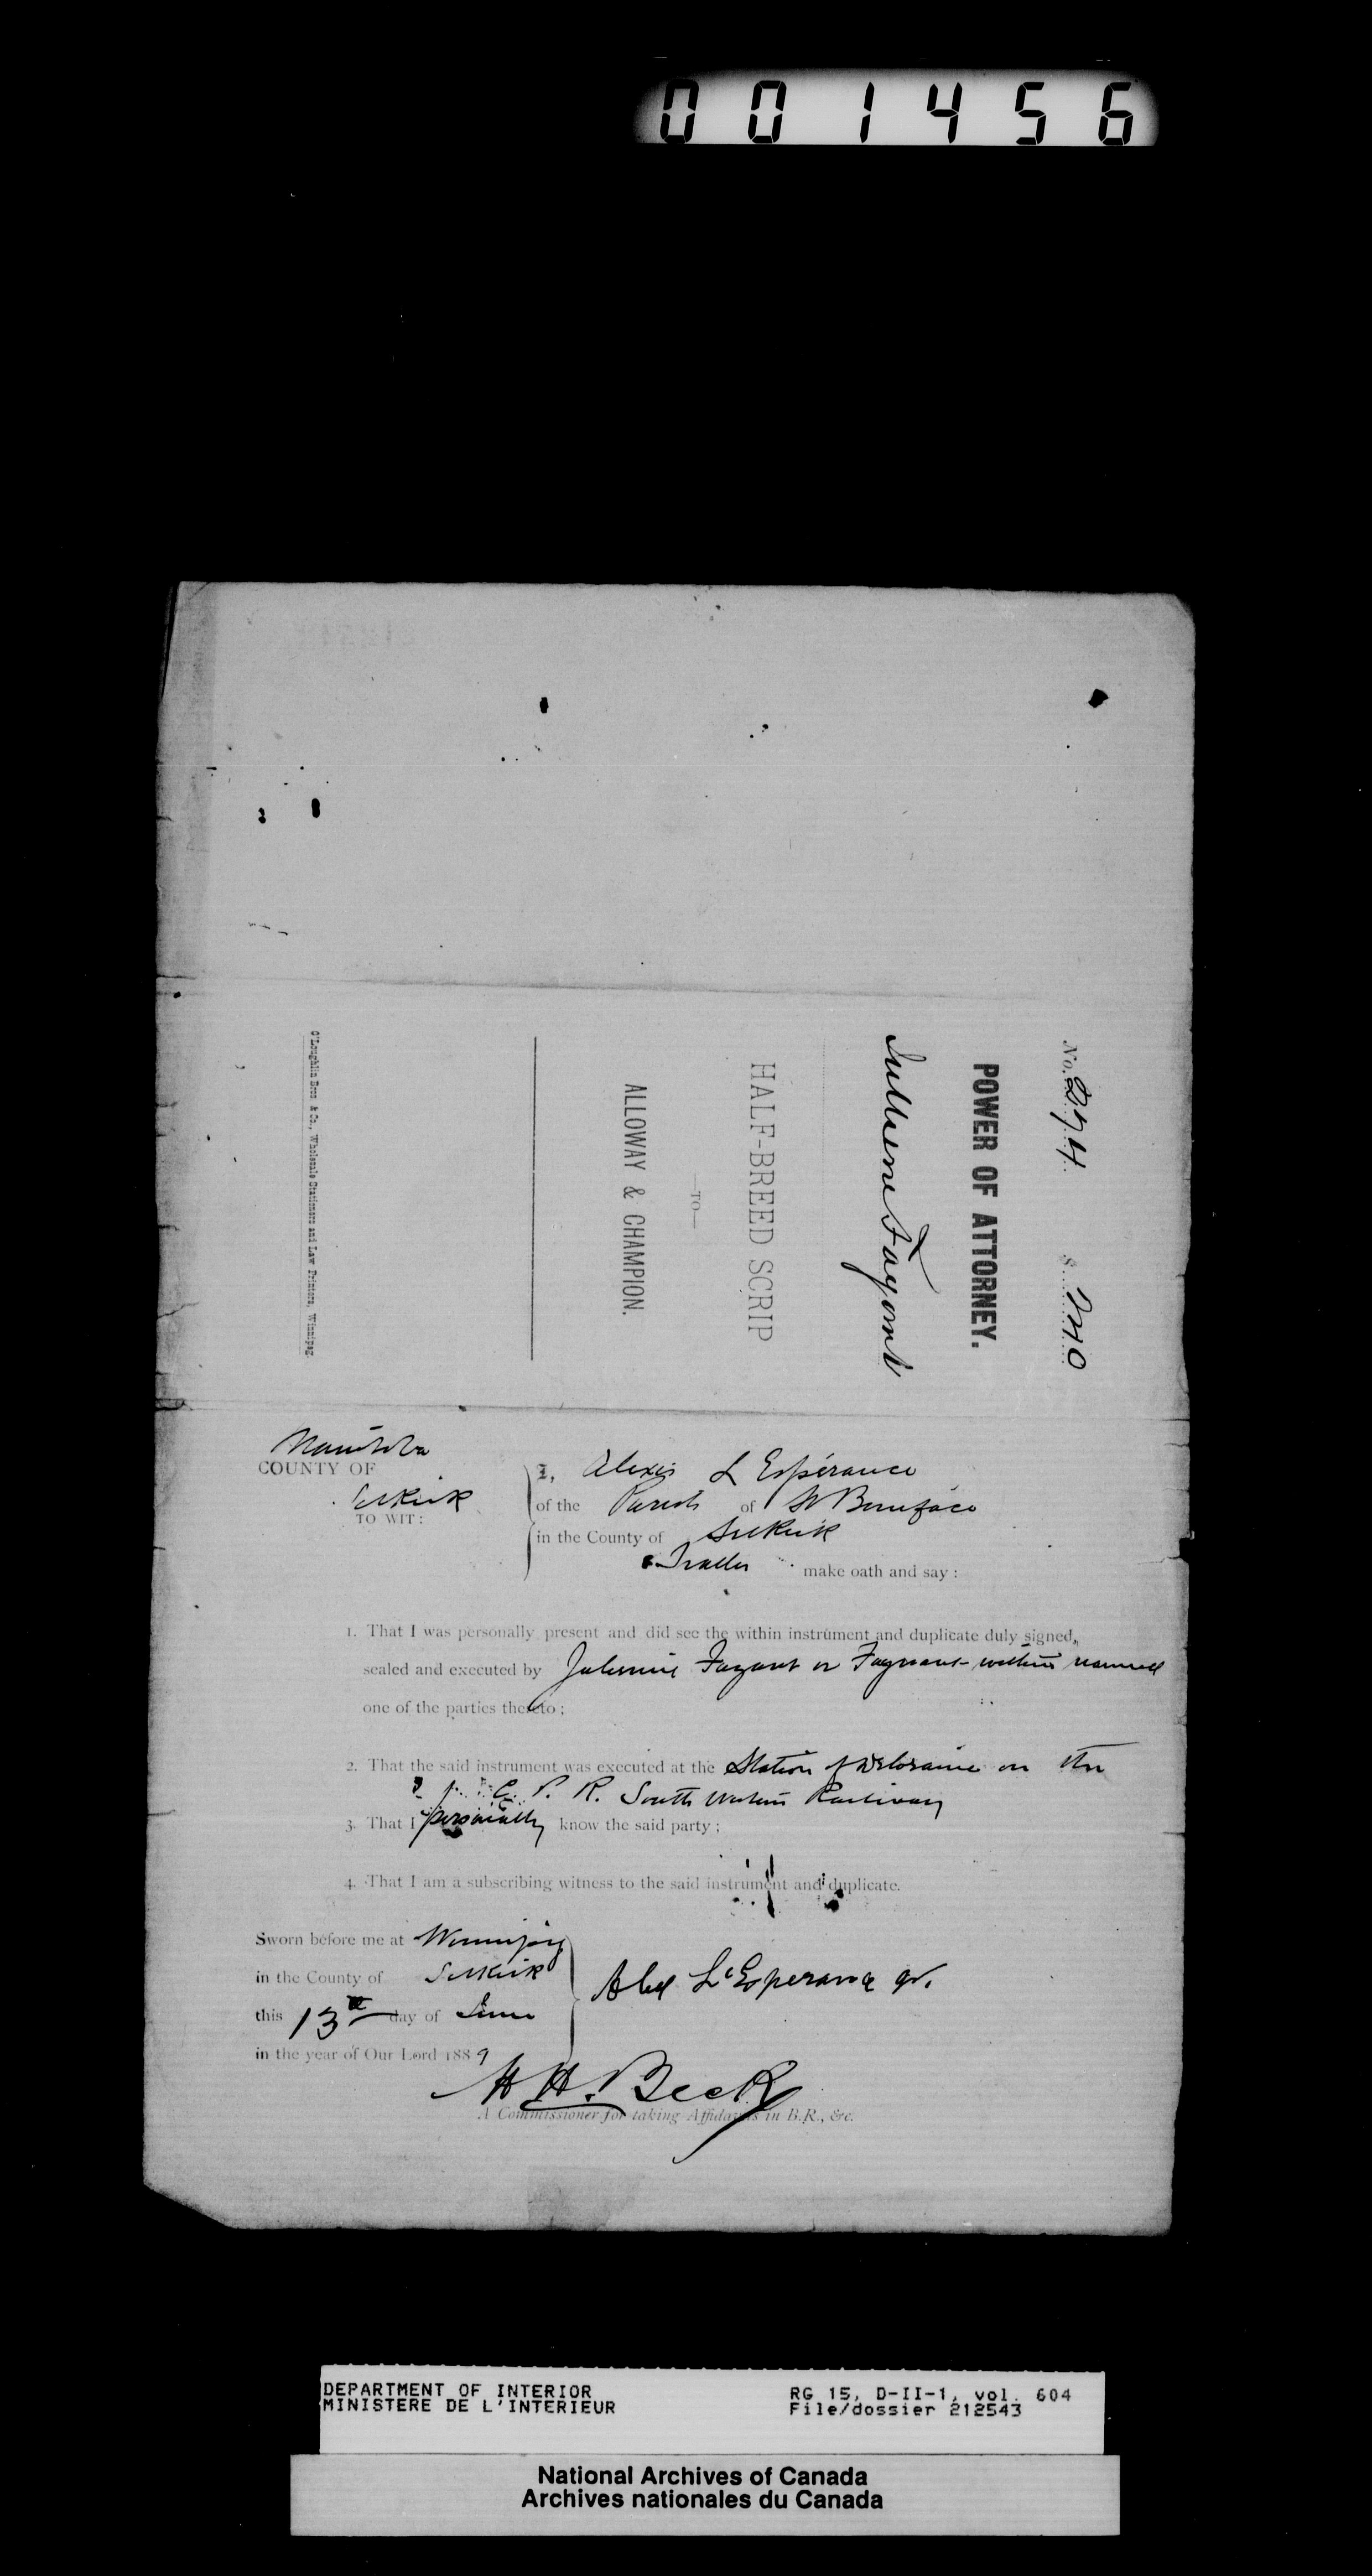 001456
No. 274 $ 240
POWER OF ATTORNEY.
Julienne Fayant
HALF-BREED SCRIP
—TO—
ALLOWAY & CHAMPION.
O'Loughlin Bros. & Co., Wholesale Stationers and Law Printers, Winnipeg.
Manitoba
COUNTY OF
Selkirk
TO WIT:
I, Alexis L Espérance
of the Parish of St Boniface
in the County of Selkirk
Trader make oath and say:
1. That I was personally present and did see the within instrument and duplicate duly signed,
sealed and executed by Julienne Fayant or Fagnant within named
one of the parties thereto;
2. That the said instrument was executed at the Station of Deloraine on the
C. P. R. South Western Railway
3. That I personally know the said party;
4. That I am a subscribing witness to the said instrument and duplicate.
Sworn before me at Winnipeg
in the County of Selkirk
this 13th day of June
in the year of Our Lord 1889
Alex L'Esperance
H. H. Beck
A Commissioner for taking Affidavits in B.R., &c.
DEPARTMENT OF INTERIOR
MINISTERE DE L'INTERIEUR
RG 15, D-II-1, vol. 604
File/dossier 212543
National Archives of Canada
Archives nationales du Canada